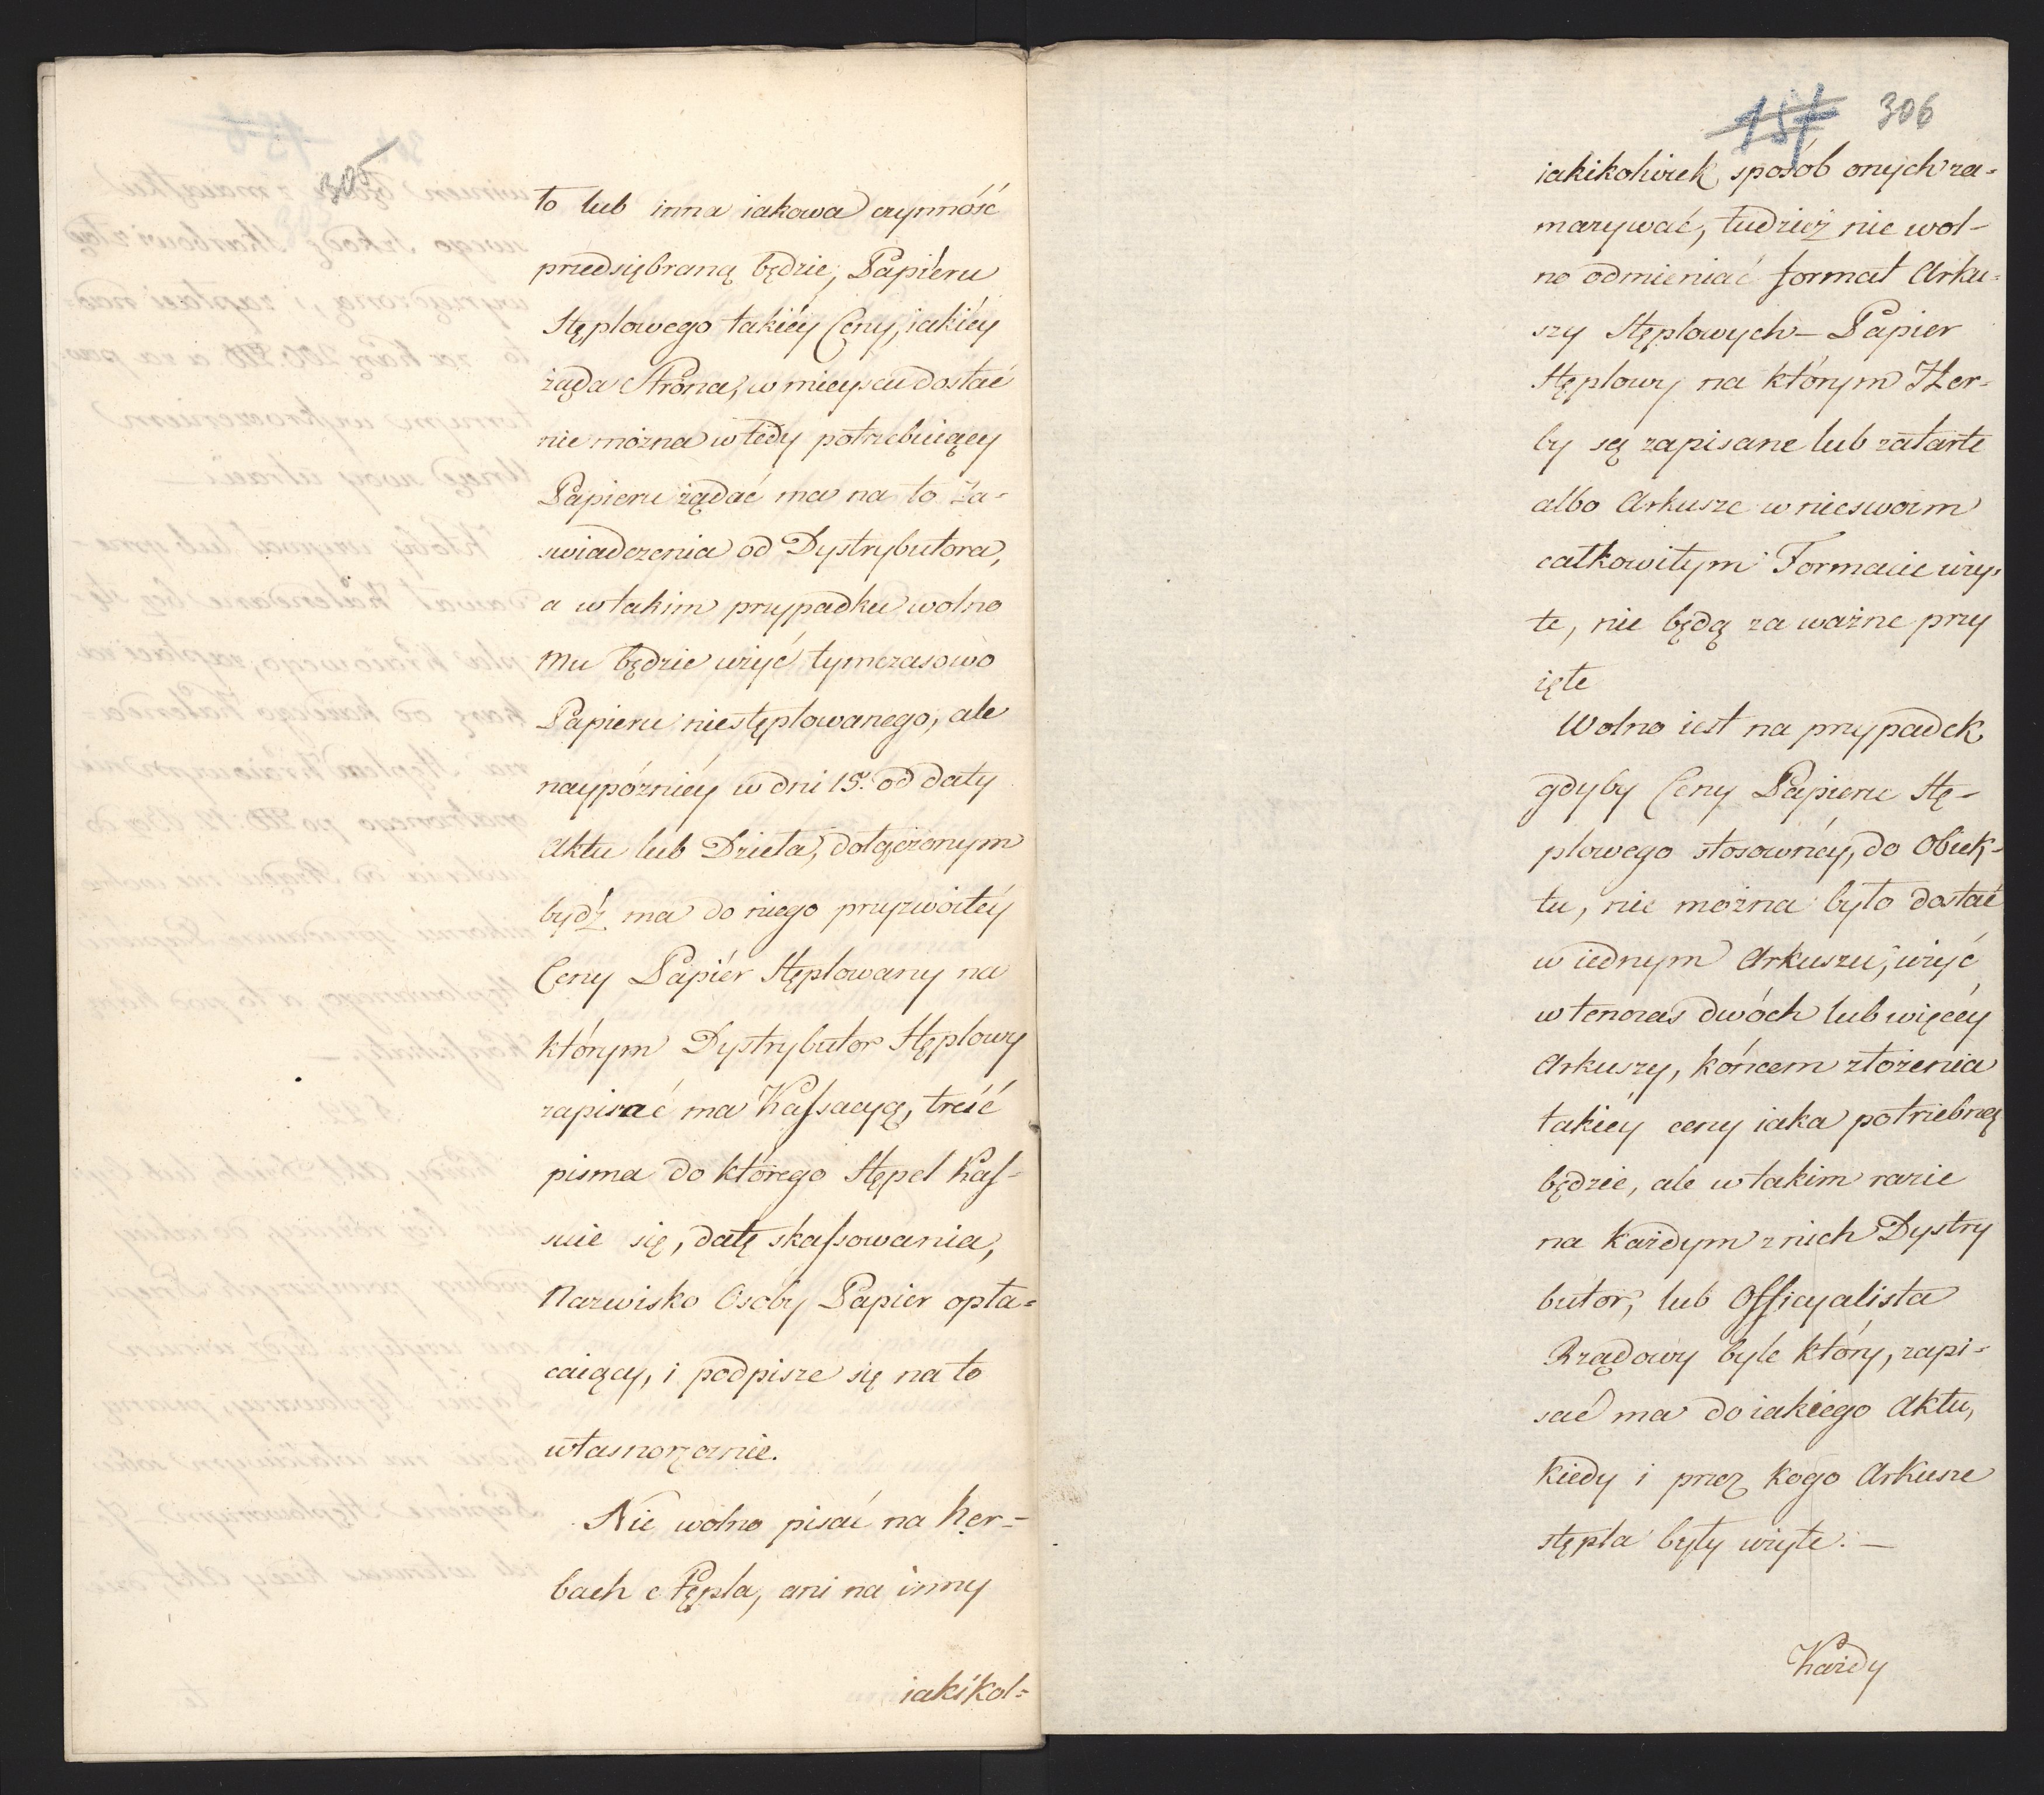 305
to lub inna iakowa czynność
przedsiębraną będzie, Papiéru
Stęplowego takiéy Ceny, iakiéy
żąda Strona, w mieyscu dostać
nie można wtedy potrzebuiący
Papieru żądać ma na to Za-
swiadczenia od Dystrybutora,
a w takim przypadku wolno
Mu będzie użyć tymczasowo
Papieru niestęplowanego, ale
naypóżniéy w dni 15. od daty
Aktu lub Dzieła, dołączonym
bydź ma do niego przyzwoitéy
Ceny Papiér Stęplowany na
którym Dystrybutor Stęplowy
zapisać ma Kaſsacyą, treść
pisma do którego Stępel kaſ-
suie się, datę skaſsowania,
Nazwisko Osoby Papier opła=
caiący, i podpisze się na to
własnoręcznie.
Nie wolno pisać na her-
bach Stępla, ani na inny
iakikol=
157 306
iakikolwiek sposób onych za=
mazywać, tudzież nie wol-
no odmieniać format Arku=
szy Stęplowych – Papier
Stęplowy na którym Her-
by są zapisane lub zatarte
albo Arkusze w nieswoim
całkowitym Formacie uży-
te, nie będą za ważne przy
ięte
Wolno iest na przypadek
gdyby Ceny Papieru Stę-
plowego stosownéy, do Obiek-
tu, nie można było dostać
w iednym Arkuszu, użyć
w tenczas dwóch lub więcéy
Arkuszy, końcem złożenia
takiéy ceny iaka potrzebną
będzie, ale w takim razie
na każdym z nich Dystry
butor, lub Officyalista
Rządowy byle który, zapi-
sać ma do iakiego Aktu,
kiedy i przez kogo Arkusze
stępla były użyte. —
Każdy